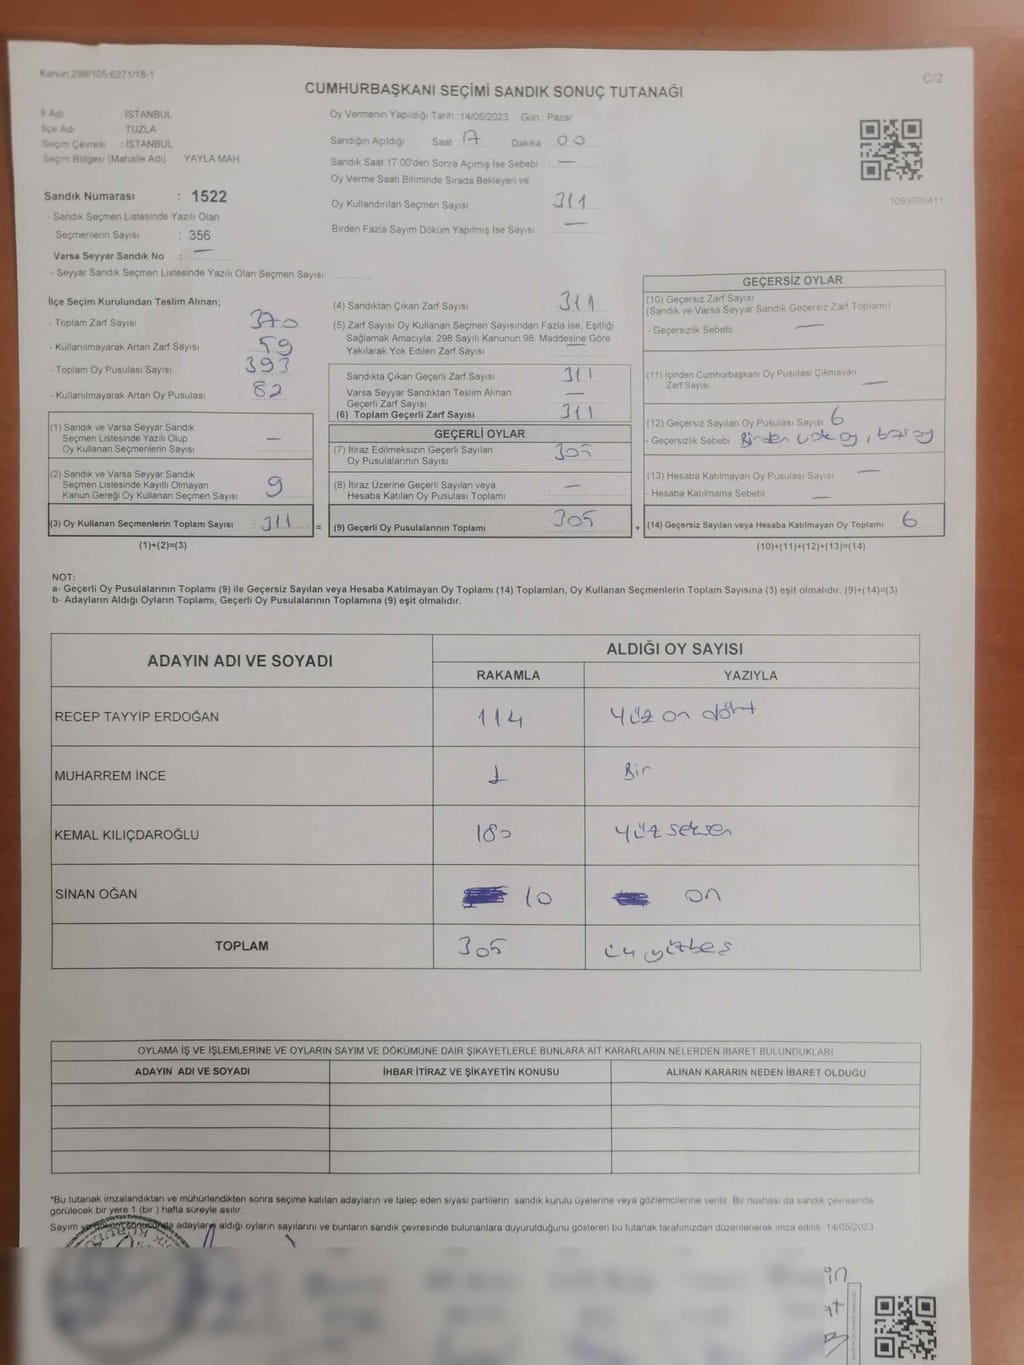 Kanun:298/105:6271/18-1
C/2
CUMHURBAŞKANI SEÇİMİ SANDIK SONUÇ TUTANAĞI
İl Adı İSTANBUL
İlçe Adı TUZLA
Seçim Çevresi : İSTANBUL
Seçim Bölgesi (Mahalle Adı) : YAYLA MAH.
Sandık Numarası : 1522
- Sandık Seçmen Listesinde Yazılı Olan
Seçmenlerin Sayısı : 356
Varsa Seyyar Sandık No : —
- Seyyar Sandık Seçmen Listesinde Yazılı Olan Seçmen Sayısı:
Oy Vermenin Yapıldığı Tarih :14/05/2023 Gün : Pazar
Sandığın Açıldığı Saat 17 Dakika 00
Sandık Saat 17:00'den Sonra Açımış İse Sebebi —
Oy Verme Saati Bitiminde Sırada Bekleyen ve
Oy Kullandırılan Seçmen Sayısı 311
Birden Fazla Sayım Döküm Yapılmış İse Sayısı —
1093695411
İlçe Seçim Kurulundan Teslim Alınan;
- Toplam Zarf Sayısı 370
- Kullanılmayarak Artan Zarf Sayısı 59
- Toplam Oy Pusulası Sayısı 393
- Kullanılmayarak Artan Oy Pusulası 82
(1) Sandık ve Varsa Seyyar Sandık
Seçmen Listesinde Yazılı Olup
Oy Kullanan Seçmenlerin Sayısı —
(2) Sandık ve Varsa Seyyar Sandık
Seçmen Listesinde Kayıtlı Olmayan
Kanun Gereği Oy Kullanan Seçmen Sayısı 9
(3) Oy Kullanan Seçmenlerin Toplam Sayısı 311 =
(1)+(2)=(3)
(4) Sandıktan Çıkan Zarf Sayısı 311
(5) Zarf Sayısı Oy Kullanan Seçmen Sayısından Fazla İse, Eşitliği
Sağlamak Amacıyla; 298 Sayılı Kanunun 98. Maddesine Göre
Yakılarak Yok Edilen Zarf Sayısı —
Sandıkta Çıkan Geçerli Zarf Sayısı 311
Varsa Seyyar Sandıktan Teslim Alınan
Geçerli Zarf Sayısı —
(6) Toplam Geçerli Zarf Sayısı 311
GEÇERLİ OYLAR
(7) İtiraz Edilmeksizin Geçerli Sayılan
Oy Pusulalarının Sayısı 305
(8) İtiraz Üzerine Geçerli Sayılan veya
Hesaba Katılan Oy Pusulası Toplamı —
(9) Geçerli Oy Pusulalarının Toplamı 305 +
GEÇERSİZ OYLAR
(10) Geçersiz Zarf Sayısı
(Sandık ve Varsa Seyyar Sandık Geçersiz Zarf Toplamı)
- Geçersizlik Sebebi —
(11) İçinden Cumhurbaşkanı Oy Pusulası Çıkmayan
Zarf Sayısı —
(12) Geçersiz Sayılan Oy Pusulası Sayısı 6
- Geçersizlik Sebebi Birden çok oy, boş oy
(13) Hesaba Katılmayan Oy Pusulası Sayısı —
- Hesaba Katılmama Sebebi —
(14) Geçersiz Sayılan veya Hesaba Katılmayan Oy Toplamı 6
(10)+(11)+(12)+(13)=(14)
NOT:
a- Geçerli Oy Pusulalarının Toplamı (9) ile Geçersiz Sayılan veya Hesaba Katılmayan Oy Toplamı (14) Toplamları, Oy Kullanan Seçmenlerin Toplam Sayısına (3) eşit olmalıdır. (9)+(14)=(3)
b- Adayların Aldığı Oyların Toplamı, Geçerli Oy Pusulalarının Toplamına (9) eşit olmalıdır.
ADAYIN ADI VE SOYADI
ALDIĞI OY SAYISI
RAKAMLA YAZIYLA
RECEP TAYYİP ERDOĞAN 114 Yüz on dört
MUHARREM İNCE 1 Bir
KEMAL KILIÇDAROĞLU 180 Yüz seksen
SİNAN OĞAN 10 on
TOPLAM 305 üç yüzbeş
OYLAMA İŞ VE İŞLEMLERİNE VE OYLARIN SAYIM VE DÖKÜMÜNE DAİR ŞİKAYETLERLE BUNLARA AİT KARARLARIN NELERDEN İBARET BULUNDUKLARI
ADAYIN ADI VE SOYADI İHBAR İTİRAZ VE ŞİKAYETİN KONUSU ALINAN KARARIN NEDEN İBARET OLDUĞU
*Bu tutanak imzalandıktan ve mühürlendikten sonra seçime katılan adayların ve talep eden siyasi partilerin sandık kurulu üyelerine veya gözlemcilerine verilir. Bir nüshası da sandık çevresinde
görülecek bir yere 1 (bir ) hafta süreyle asılır.
Sayım ve döküm sonucunda adayların aldığı oyların sayılarını ve bunların sandık çevresinde bulunanlara duyurulduğunu gösteren bu tutanak tarafımızdan düzenlenerek imza edildi. 14/05/2023